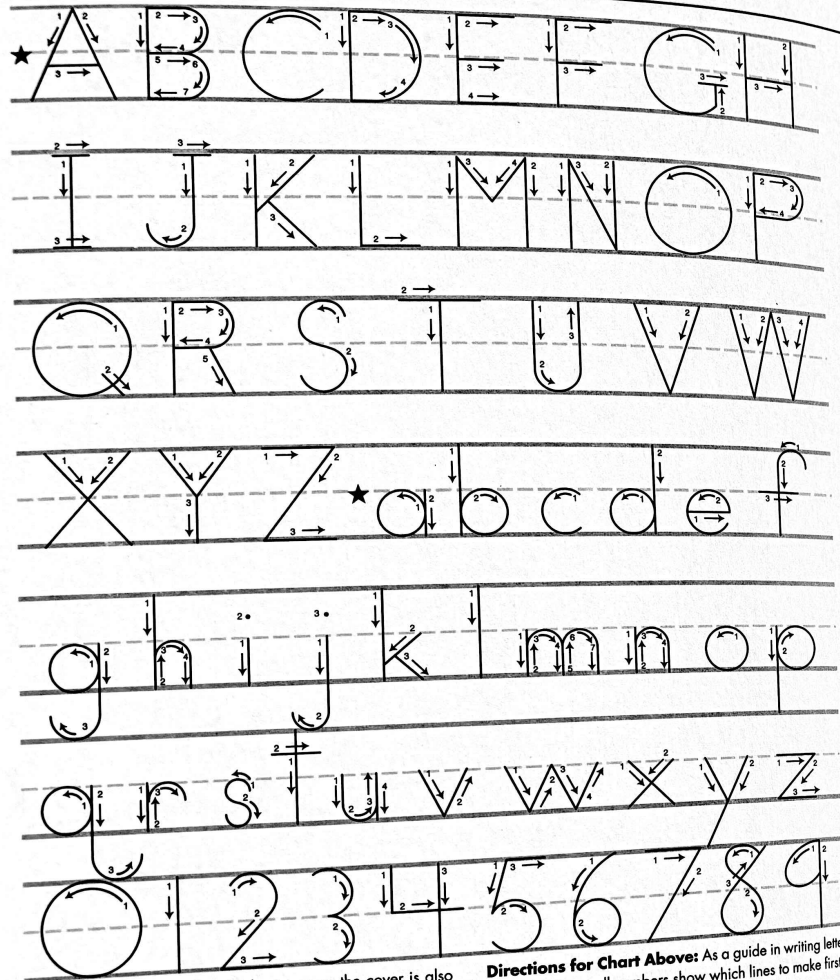 ★ A B C D E F G H
I J K L M N O P
Q R S T U V W
X Y Z ★ a b c d e f
g h i j k l m n o p
q r s t u v w x y z
0 1 2 3 4 5 6 7 8 9
the cover is also
Directions for Chart Above: As a guide in writing
numbers show which lines to make first